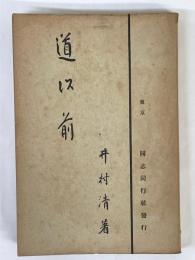 道以前
井村清著
東京
同志同行社發行